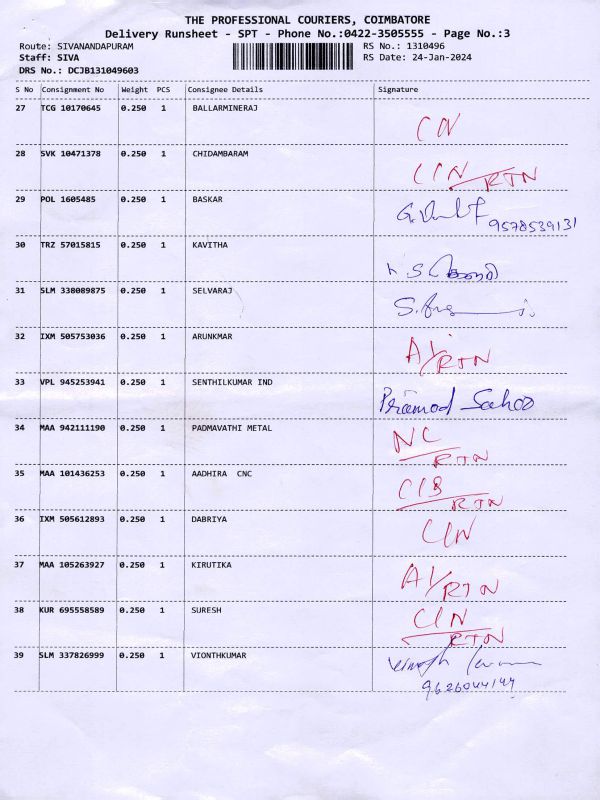 THE PROFESSIONAL COURIERS, COIMBATORE
Delivery Runsheet - SPT - Phone No.:0422-3505555 - Page No.:3
Route: SIVANANDAPURAM RS No.: 1310496
Staff: SIVA RS Date: 24-Jan-2024
DRS No.: DCJB131049603
S No Consignment No Weight PCS Consignee Details Signature
27 TCG 10170645 0.250 1 BALLARMINERAJ CIN
28 SVK 10471378 0.250 1 CHIDAMBARAM CIN RTN
29 POL 1605485 0.250 1 BASKAR 9578539131
30 TRZ 57015815 0.250 1 KAVITHA
31 SLM 338089875 0.250 1 SELVARAJ
32 IXM 505753036 0.250 1 ARUNKMAR A/RTN
33 VPL 945253941 0.250 1 SENTHILKUMAR IND Pramod Sahoo
34 MAA 942111190 0.250 1 PADMAVATHI METAL NC RTN
35 MAA 101436253 0.250 1 AADHIRA CNC RTN
36 IXM 505612893 0.250 1 DABRIYA CIN
37 MAA 105263927 0.250 1 KIRUTIKA A/RTN
38 KUR 695558589 0.250 1 SURESH CIN RTN
39 SLM 337826999 0.250 1 VIONTHKUMAR